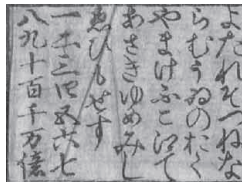 よたれそつねな
らむうゐのおく
やまけふこえて
あさきゆめみし
ゑひもせす
一二三四五六七
八九十百千万億